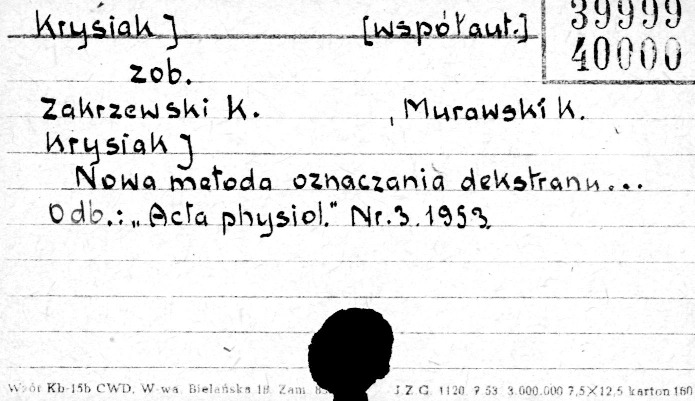 Krysiak J [współaut.] 39999
40000
zob.
Zakrzewski K. , Murawski K.
Krysiak J
Nowa metoda oznaczania dekstranu...
Odb.: „Acta physiol." Nr.3.1953.
Wzór Kb-15b CWD, W-wa, Bielańska 18. Zam. J.Z.G. 1120 7.53 3.000.000 7,5×12,5 karton 160